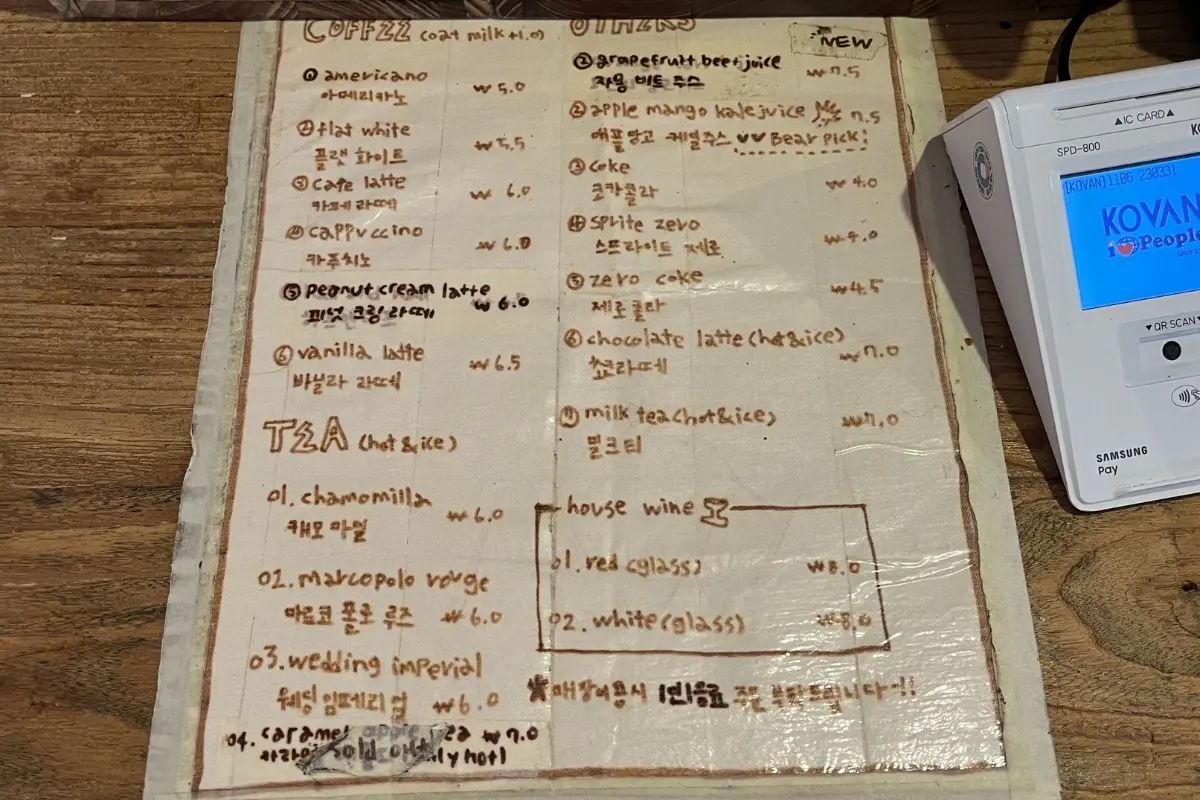 COFFEE (oat milk +1.0)
① americano
아메리카노 ₩ 5.0
② flat white
플랫 화이트 ₩ 5.5
③ cafe latte
카페 라떼 ₩ 6.0
④ cappuccino
카푸치노 ₩ 6.0
⑤ peanut cream latte
피넛 크림 라떼 ₩ 6.0
⑥ vanilla latte
바닐라 라떼 ₩ 6.5
TEA (hot & ice)
01. chamomilla
캐모마일 ₩ 6.0
02. marcopolo rouge
마르코 폴로 루즈 ₩ 6.0
03. wedding imperial
웨딩 임페리얼 ₩ 6.0
04. caramel apple tea ₩ 7.0
OTHERS
NEW
② grapefruit beet juice
자몽 비트 주스 ₩ 7.5
② apple mango kale juice 7.5
애플망고 케일주스 ♥♥ Bear Pick!
③ coke
코카콜라 ₩ 4.0
④ sprite zero
스프라이트 제로 ₩ 4.0
⑤ zero coke
제로콜라 ₩ 4.5
⑥ chocolate latte (hot & ice)
쵸코라떼 ₩ 7.0
⑦ milk tea (hot & ice)
밀크티 ₩ 7.0
house wine
01. red (glass) ₩ 8.0
02. white (glass) ₩ 8.0
★매장이용시 1인1음료 주문 부탁드립니다~!!
▲IC CARD▲
SPD-800
[KOVAN]1106 230331
KOVAN
i ♥ People
▼QR SCAN▼
SAMSUNG
Pay